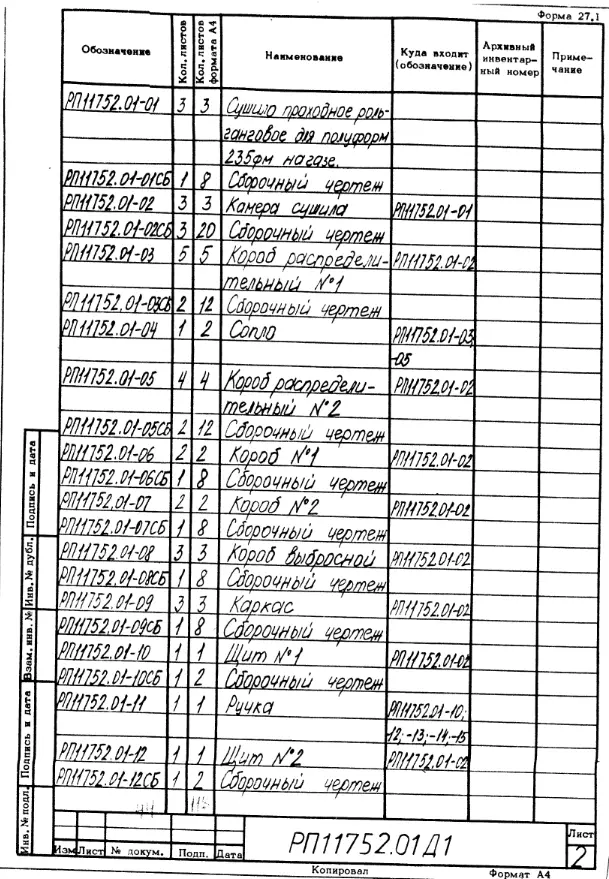 Форма 27.1
Обозначение Кол. листов Кол. листов формата А4 Наименование Куда входит (обозначение) Архивный инвентарный номер Примечание
РП11752.01-01 3 3 Сушило проходное роль-
ганговое для полуформ
235фм на газе.
РП11752.01-01СБ 1 8 Сборочный чертеж
РП11752.01-02 3 3 Камера сушила РП11752.01-01
РП11752.01-02СБ 3 20 Сборочный чертеж
РП11752.01-03 5 5 Короб распредели- РП11752.01-02
тельный №1
РП11752.01-03СБ 2 12 Сборочный чертеж
РП11752.01-04 1 2 Сопло РП11752.01-03,
-05
РП11752.01-05 4 4 Короб распредели- РП11752.01-02
тельный №2
РП11752.01-05СБ 2 12 Сборочный чертеж
РП11752.01-06 2 2 Короб №1 РП11752.01-02
РП11752.01-06СБ 1 8 Сборочный чертеж
РП11752.01-07 2 2 Короб №2 РП11752.01-02
РП11752.01-07СБ 1 8 Сборочный чертеж
РП11752.01-08 3 3 Короб выбросной РП11752.01-02
РП11752.01-08СБ 1 8 Сборочный чертеж
РП11752.01-09 3 3 Каркас РП11752.01-02
РП11752.01-09СБ 1 8 Сборочный чертеж
РП11752.01-10 1 1 Щит №1 РП11752.01-02
РП11752.01-10СБ 1 2 Сборочный чертеж
РП11752.01-11 1 1 Ручка РП11752.01-10;
-12; -13; -14; -15
РП11752.01-12 1 1 Щит №2 РП11752.01-02
РП11752.01-12СБ 1 2 Сборочный чертеж
44
Подпись и дата
Инв. № дубл.
Взам. инв. №
Подпись и дата
Инв. № подл.
Изм Лист № докум. Подп. Дата
РП11752.01Д1
Лист
2
Копировал Формат А4